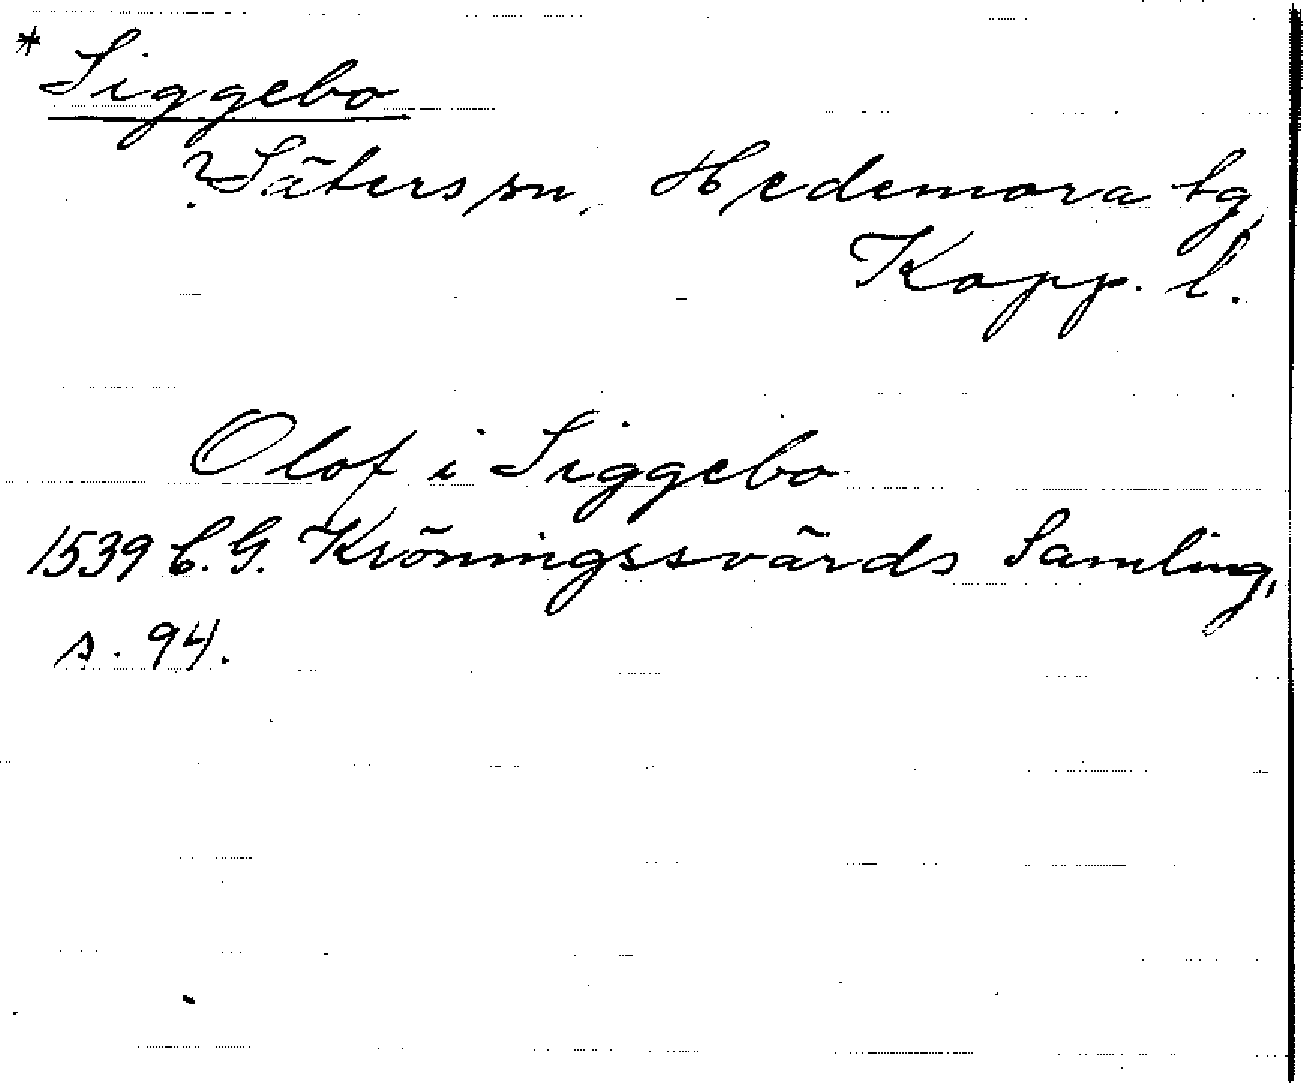 * Siggebo
? Säters sn, Hedemora tg,
Kopp. l.
Olof i Siggebo
1539 C. G. Kröningssvärds Samling,
s. 94.